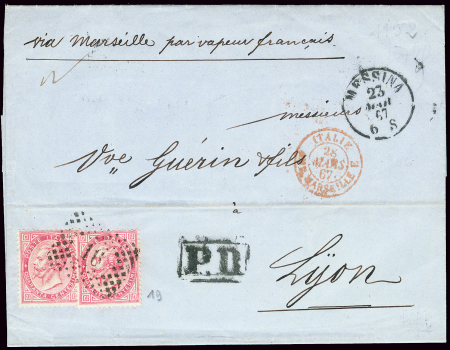 via Marseille par vapeur français.
MESSINA
23
MAR
67
6 S
messieurs
ITALIE
28
MARS
67
MARSEILLE
Vve Guérin & fils
à
P.D.
Lyon
19